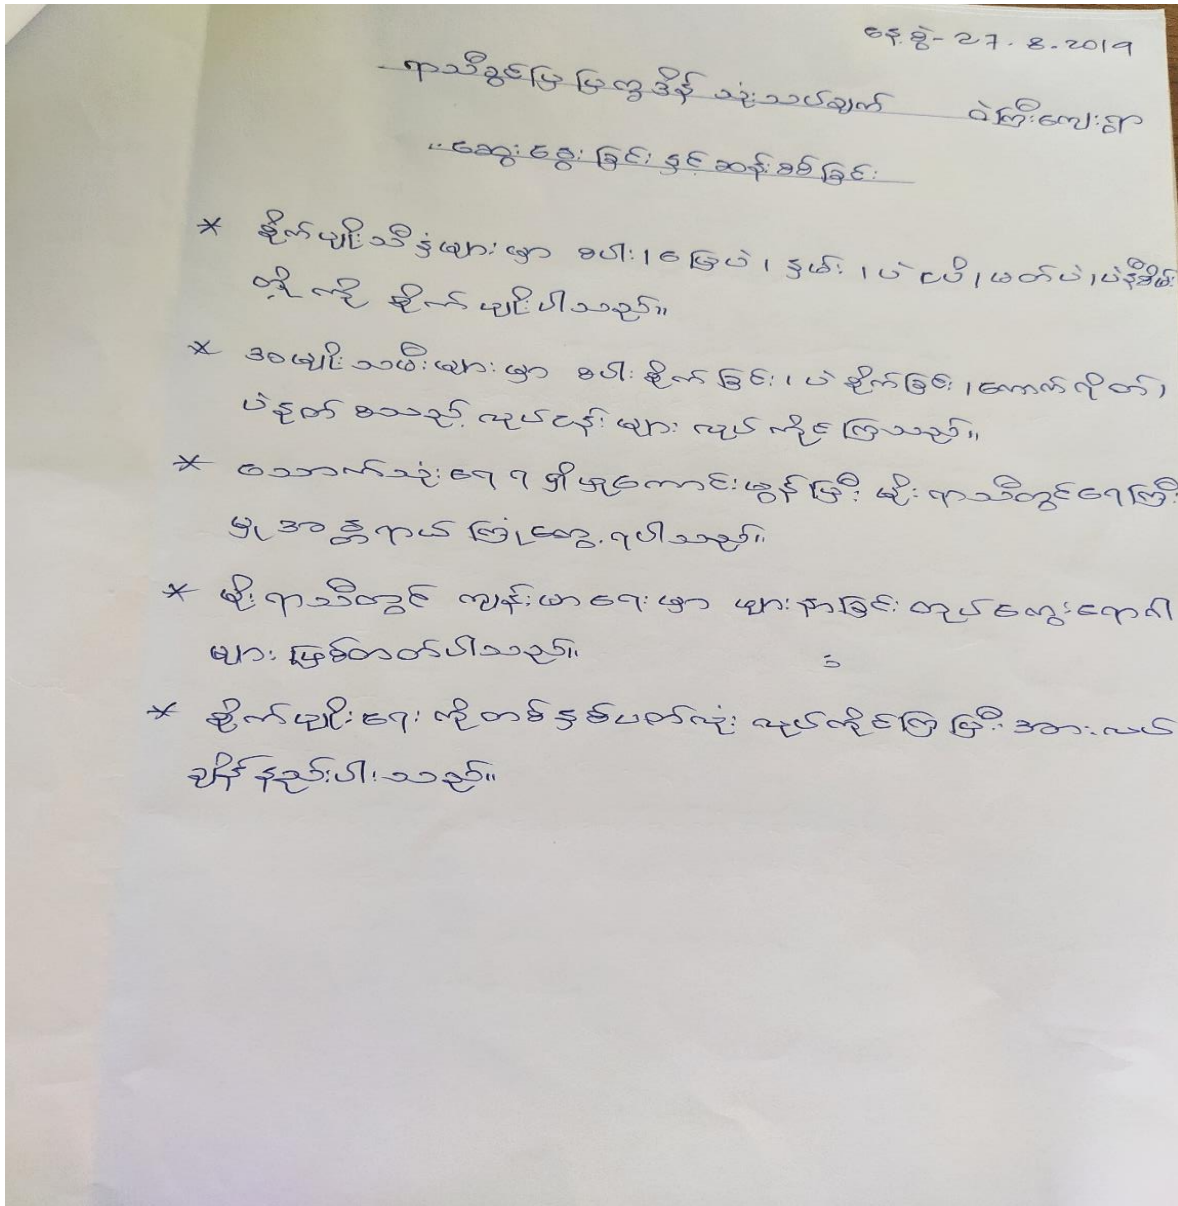 နေ့စွဲ- 27.8.2019
ရာသီခွင်ပြ ပြက္ခဒိန် သုံးသပ်ချက် ဝဲကြီးကျေးရွာ
ဆွေးနွေးခြင်း နှင့် ဆန်းစစ်ခြင်း
* စိုက်ပျိုးသီးနှံများမှာ စပါး၊ မြေပဲ၊ နှမ်း၊ ပဲ ငပိ၊ မတ်ပဲ၊ ပဲနီစိမ်း
တို့ ကို စိုက်ပျိုးပါသည်။
* အမျိုးသမီးများမှာ စပါးစိုက်ခြင်း၊ ပဲ စိုက်ခြင်း၊ ကောက်လှိုတ်၊
ပဲနုတ် စသည့် လုပ်ငန်းများ လုပ်ကိုင်ကြသည်။
* သောက်သုံးရေ ရရှိမှုကောင်းမွန်ပြီး မိုးရာသီတွင်ရေကြီး
မှု အန္တရာယ် ကြုံတွေ့ရပါသည်။
* မိုးရာသီတွင် ကျန်းမာရေးမှာ ဖျားနာခြင်း တုပ်ကွေးရောဂါ
များ ဖြစ်တတ်ပါသည်။
* စိုက်ပျိုးရေးကို တစ်နှစ်ပတ်လုံး လုပ်ကိုင်ကြပြီး အားလပ်
ချိန် နည်းပါးသည်။